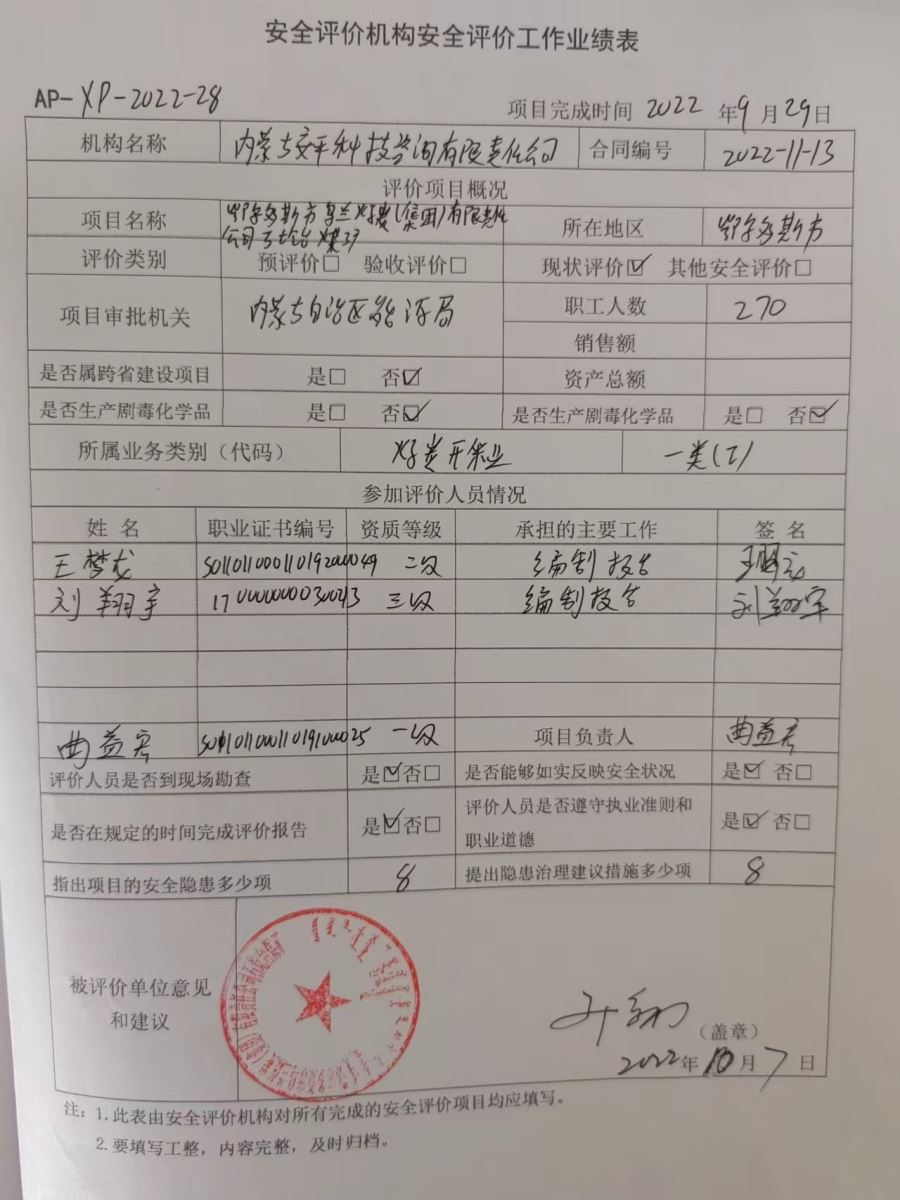 安全评价机构安全评价工作业绩表
AP-XP-2022-28
项目完成时间 2022 年9月29日
机构名称 内蒙古安平科技咨询有限责任公司 合同编号 2022-11-13
评价项目概况
项目名称 鄂尔多斯市乌兰煤炭(集团)有限责任 所在地区 鄂尔多斯市
公司 煤矿
评价类别 预评价□ 验收评价□ 现状评价☑ 其他安全评价□
项目审批机关 内蒙古自治区能源局 职工人数 270
销售额
是否属跨省建设项目 是□ 否☑ 资产总额
是否生产剧毒化学品 是□ 否☑ 是否生产剧毒化学品 是□ 否☑
所属业务类别（代码） 煤炭开采业 一类(I)
参加评价人员情况
姓 名 职业证书编号 资质等级 承担的主要工作 签 名
王梦龙 S011011000110192000049 二级 编制报告
刘翔宇 三级 编制报告 刘翔宇
曲益宏 S011011000110191000025 一级 项目负责人 曲益宏
评价人员是否到现场勘查 是☑否□ 是否能够如实反映安全状况 是☑ 否□
是否在规定的时间完成评价报告 是☑否□ 评价人员是否遵守执业准则和
职业道德 是☑ 否□
指出项目的安全隐患多少项 8 提出隐患治理建议措施多少项 8
被评价单位意见
和建议
（盖章）
2022年10月7日
注：1.此表由安全评价机构对所有完成的安全评价项目均应填写。
2.要填写工整，内容完整，及时归档。